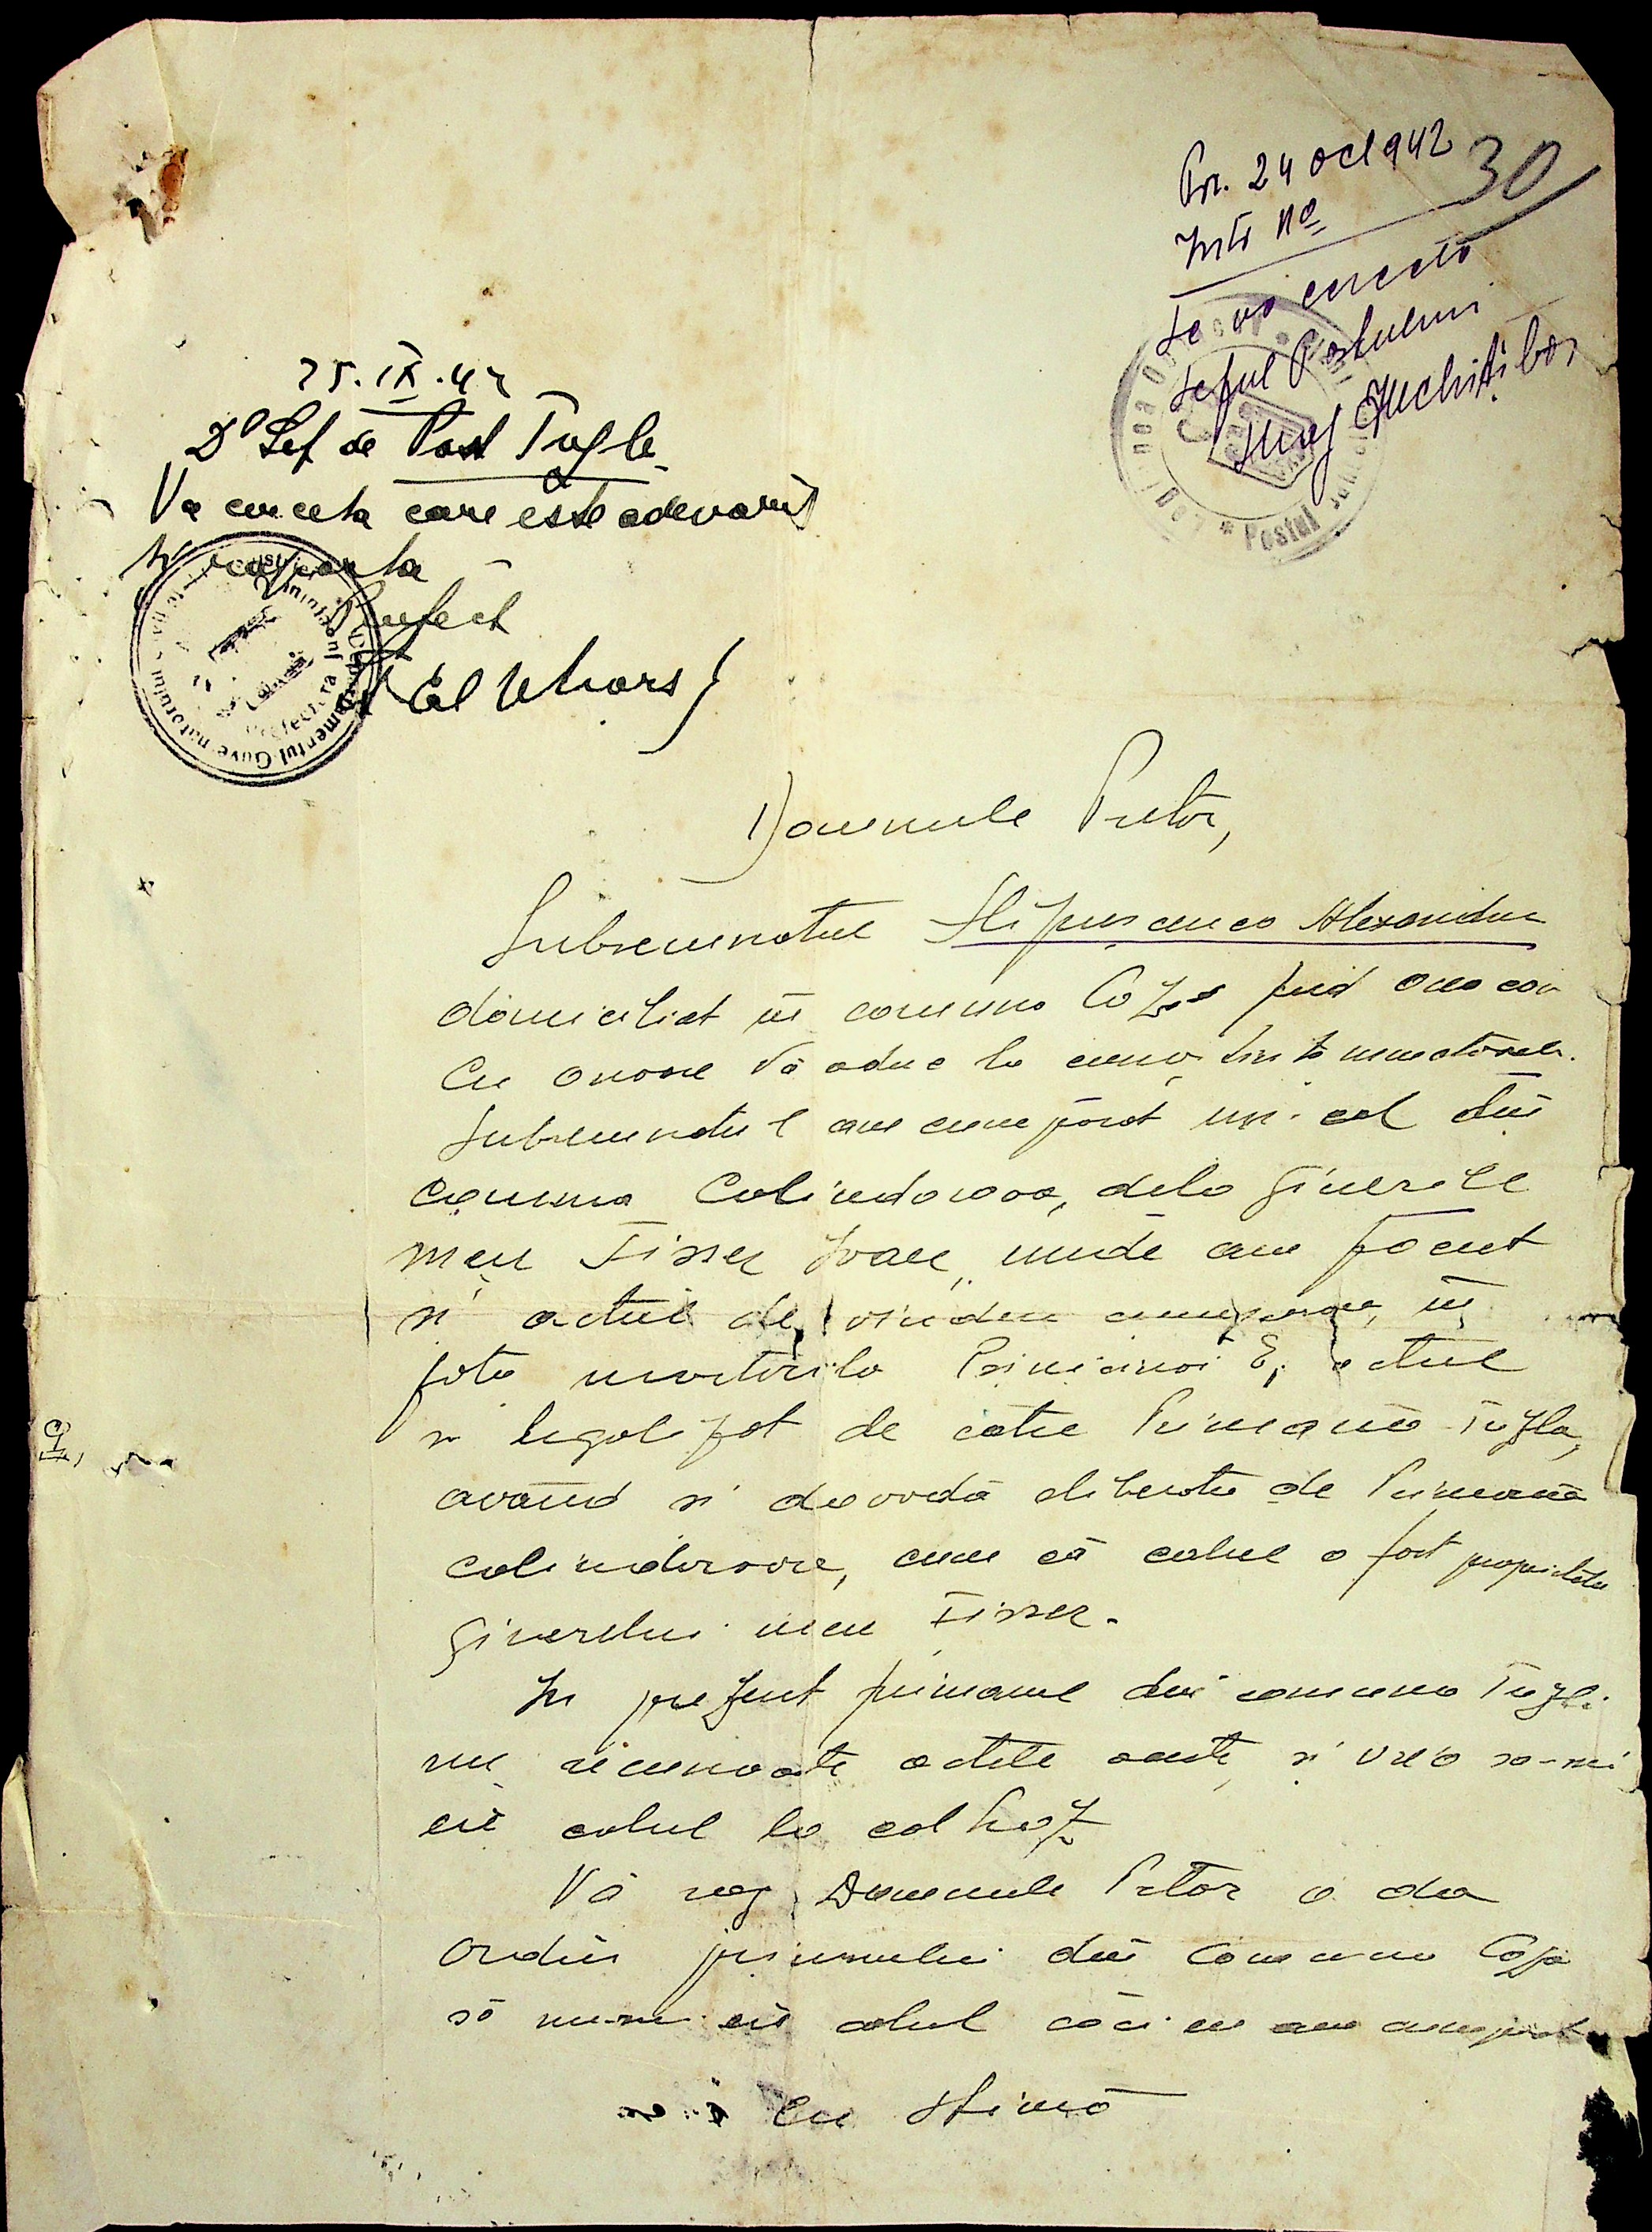 Pr. 24 Oct 942
Intr No 30
Se va cerceta
Seful Postului
25.IX.42
Dl Sef de Post Tuzla
Va cerceta care este adevarul
si raporta
Prefect
Domnule Pretor,
Subsemnatul Slipuscenco Alexandru
domiciliat în comuna
Cu onoare Vă aduc la cunoștință
Subsemnatul am cumpărat un cal din
comuna Colindorova, dela ginerile
meu Fisser Ivan, unde am făcut
si actul de vindere cumparare, în
fața martorilor Primăriei actul
legalizat de către Primăria Tuzla,
avănd si dovadă eliberată de Primăria
Colindorova, cum că calul a fost proprietatea
ginerelui meu Fisser.
In prezent primarul din comuna Tuzla
nu recunoaște actele aceste, si vrea sa-mi
eie calul la colhoz
Vă rog Domnule Pretor a da
ordin primarului din Comuna
să nu-mi eie calul căci eu am cumpărat
cu stimă
Postul Jand
Prefectura